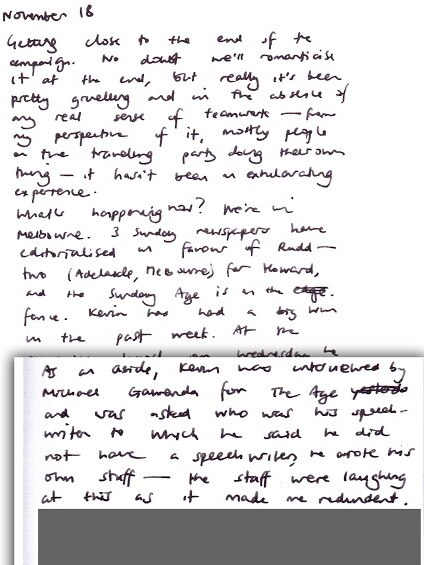 November 18
Getting close to the end of the
campaign. No doubt we'll romanticise
it at the end, but really it's been
pretty gruelling and in the absence of
any real sense of teamwork — from
my perspective of it, mostly people
on the travelling party doing their own
thing — it hasn't been an exhilarating
experience.
What's happening now? We're in
Melbourne. 3 Sunday newspapers have
editorialised in favour of Rudd —
two (Adelaide, Melbourne) for Howard,
and the Sunday Age is on the
fence. Kevin has had a big win
in the past week. At the
on Wednesday he
As an aside, Kevin was interviewed by
Michael Gawenda for The Age
and was asked who was his speech-
writer to which he said he did
not have a speechwriter, he wrote his
own stuff — the staff were laughing
at this as it made me redundant.